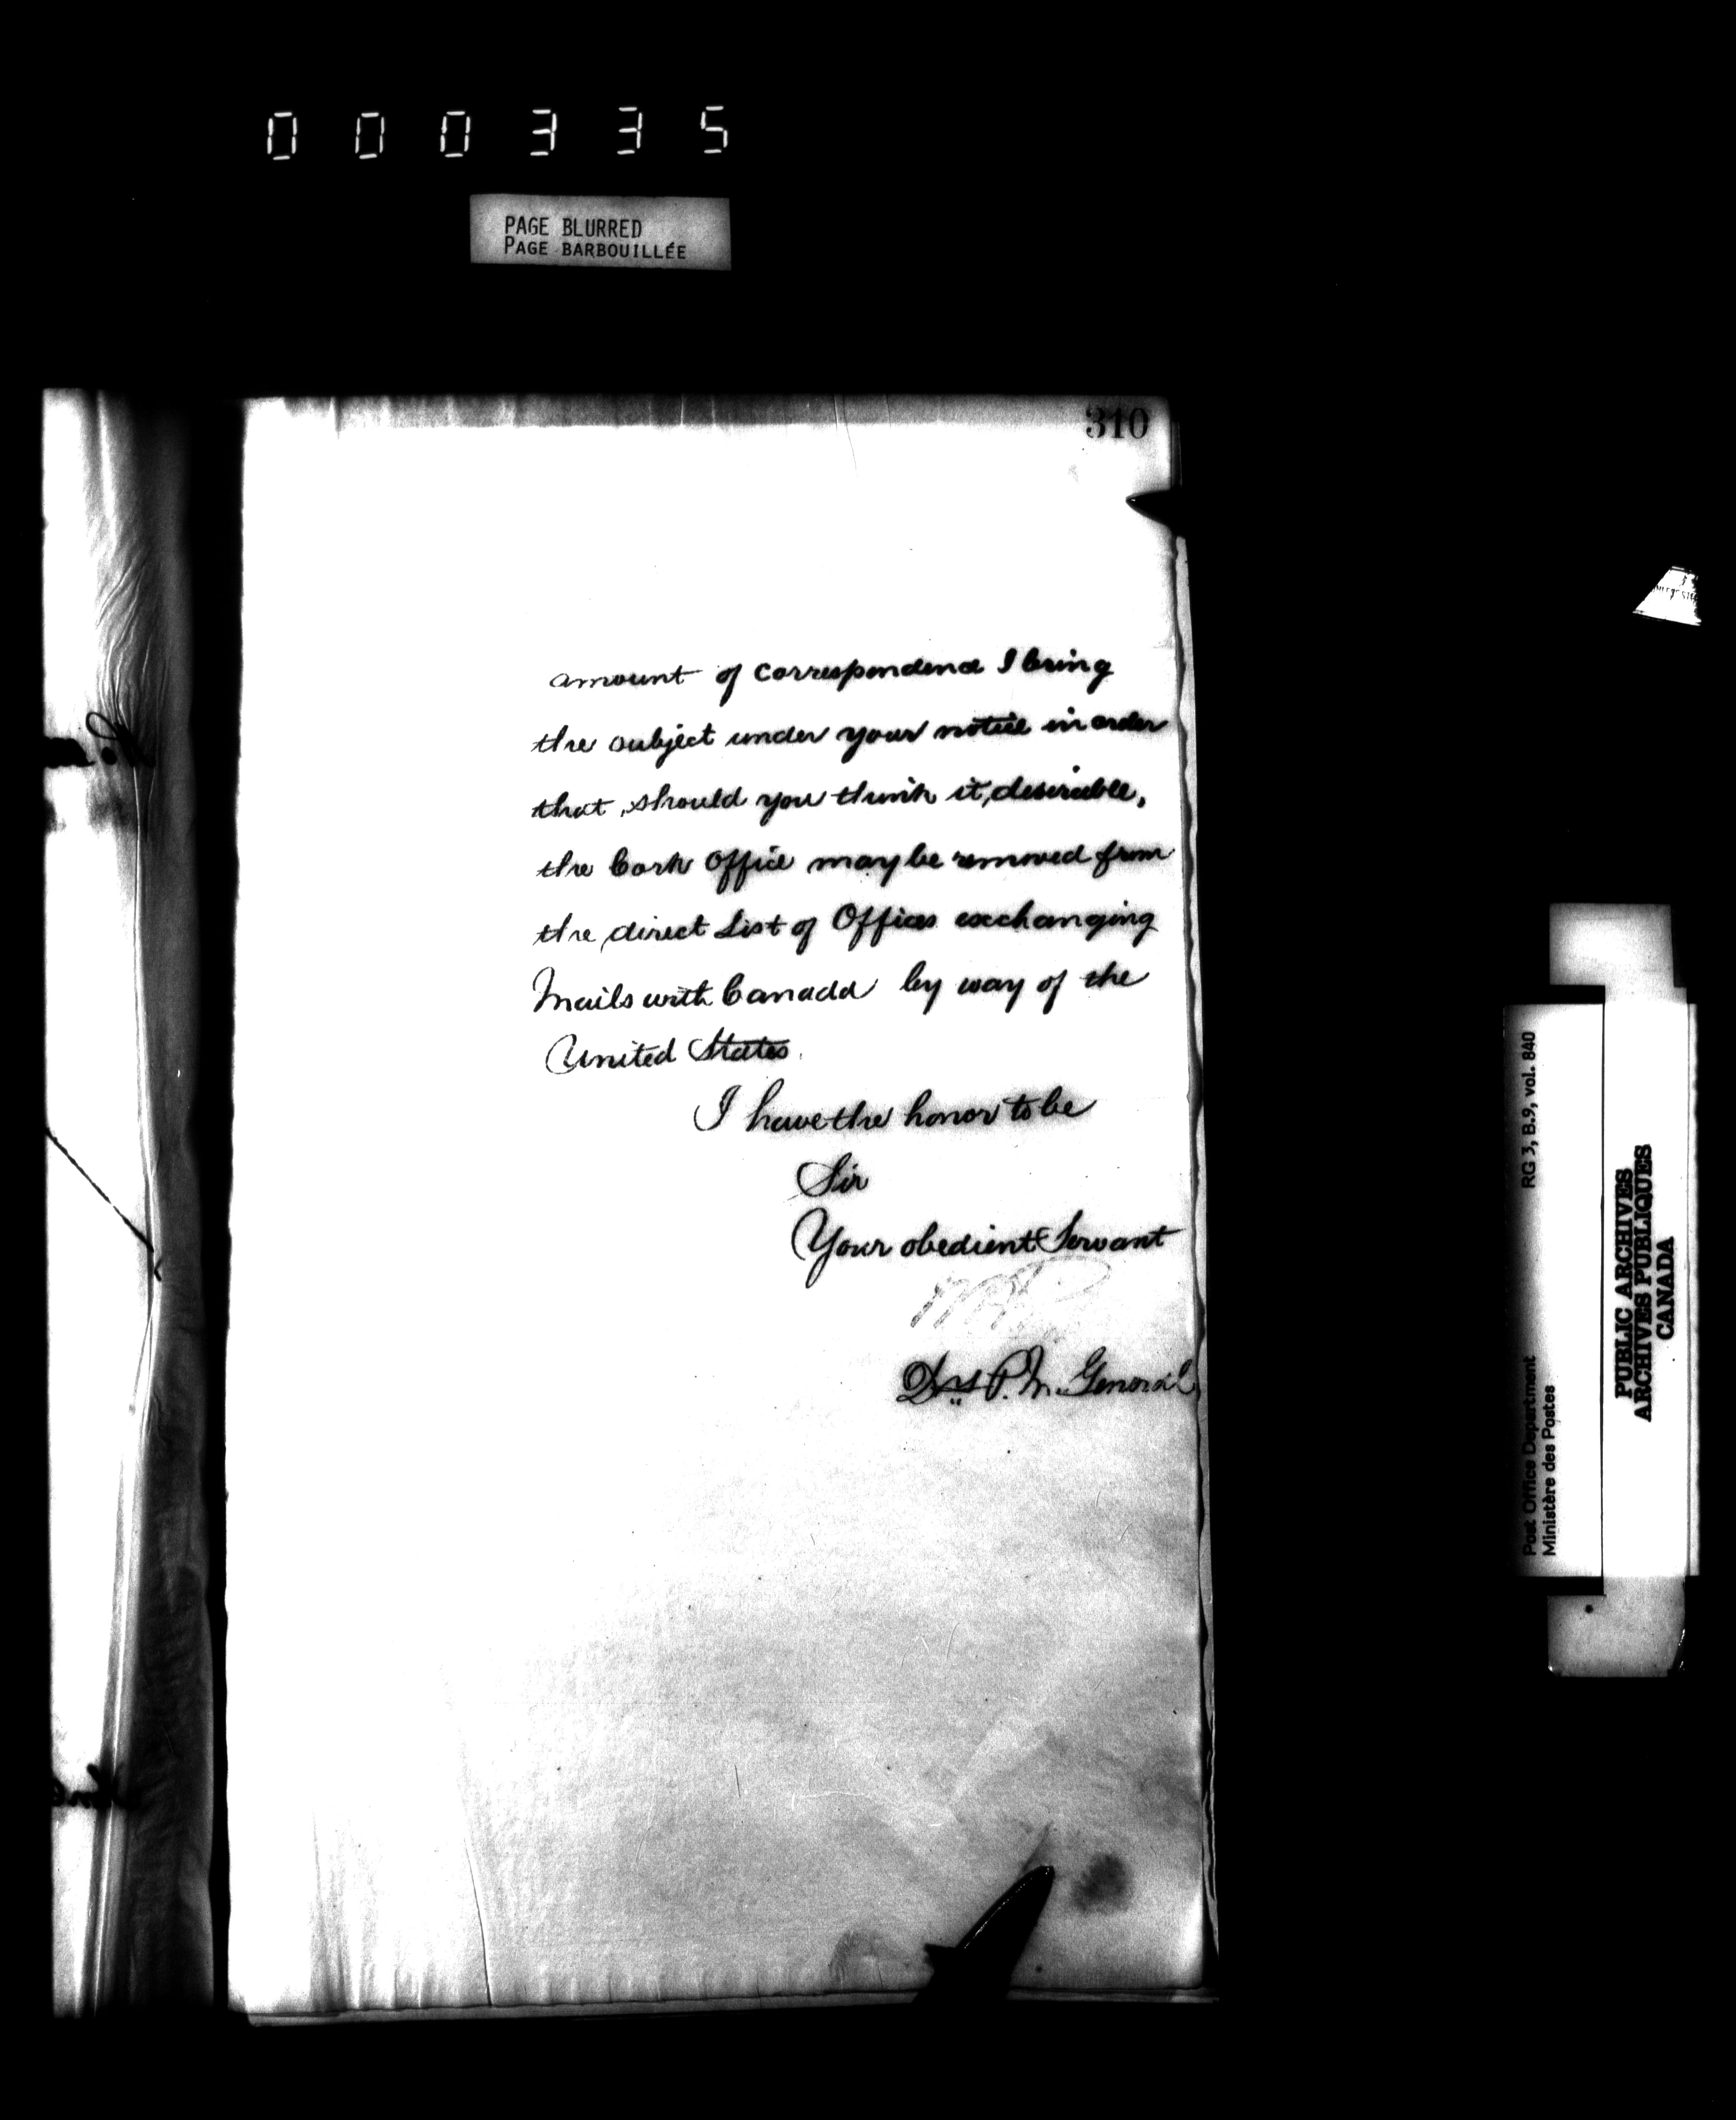 000335
PAGE BLURRED
PAGE BARBOUILLÉE
310
amount of Correspondence I bring
the subject under your notice in order
that, should you think it, desirable,
the Cork Office may be removed from
the direct List of Offices exchanging
Mails with Canada by way of the
United States.
I have the honor to be
Sir
Your obedient Servant
P. M. General
RG 3, B.9, vol. 840
Post Office Department
Ministère des Postes
PUBLIC ARCHIVES
ARCHIVES PUBLIQUES
CANADA